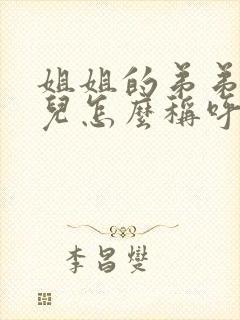 姐姐的弟弟
兒怎麼稱呼
李昌燮